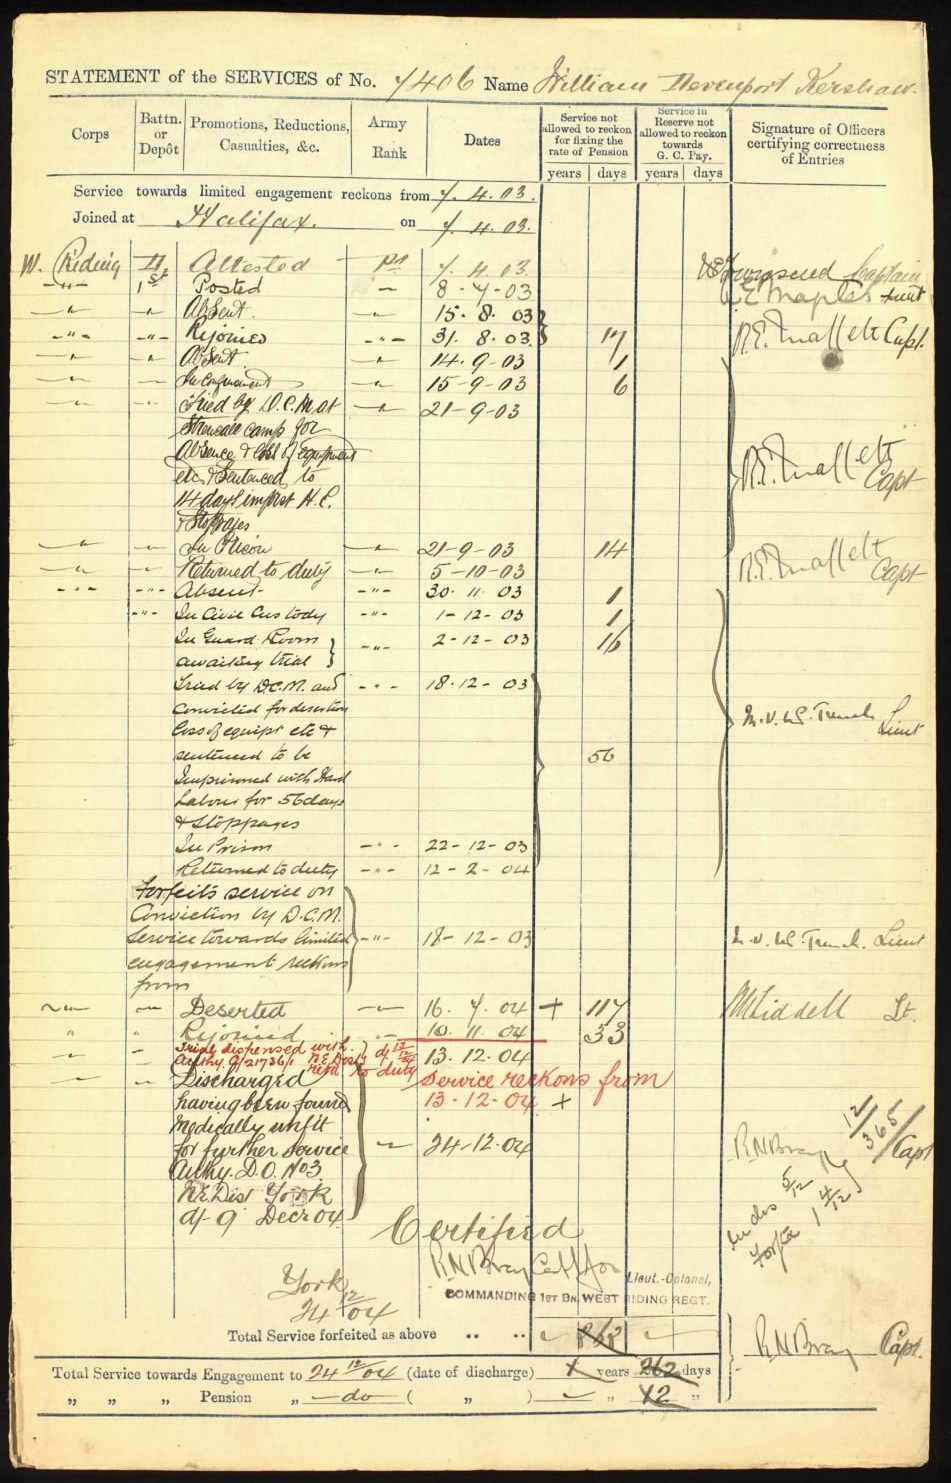 STATEMENT of the SERVICES of No. 7406 Name William Devenport Kershaw.
Corps
Battn. or Depôt
Promotions, Reductions, Casualties, &c.
Army Rank
Dates
Service not allowed to reckon for fixing the rate of Pension
years days
Service in Reserve not allowed to reckon towards G. C. Pay.
years days
Signature of Officers certifying correctness of Entries
Service towards limited engagement reckons from 7.4.03.
Joined at Halifax. on 7.4.03.
W. Riding Attested Pte 7.4.03. Townsend Captain
-"- 1st Posted - 8-7-03 Maples Lieut
-"- Absent. -"- 15.8.03
-"- -"- Rejoined -"- 31.8.03 17 Capt.
-"- Absent -"- 14-9-03 1
-"- In Confinement -"- 15-9-03 6
-"- -"- Tried by D.C.M at -"- 21-9-03
Strensall Camp for
Absence & loss of Equipment
etc & Sentenced to
14 days impst H.L. Capt
& Stoppages
-"- -"- In Prison -"- 21-9-03 14
-"- -"- Returned to duty -"- 5-10-03 Capt
-"- -"- Absent -"- 30.11.03 1
-"- In Civil Custody -"- 1-12-03 1
In Guard Room -"- 2-12-03 16
awaiting trial
Tried by D.C.M. and -"- 18.12-03
Convicted for desertion
loss of equipt etc & Lieut
sentenced to be 56
Imprisoned with Hard
Labour for 56 days
& Stoppages
In Prison -"- 22-12-03
Returned to duty -"- 12-2-04
Forfeits service on
Conviction by D.C.M.
Service towards limited -"- 18-12-03 Lieut
engagement reckons
from
-"- -"- Deserted -"- 16.7.04 + 117 Liddell Lt.
" " Rejoined -"- 10.11.04 33
-"- Trial dispensed with. 13.12.04
Authy. 9/21736/1 N.E. Dist
retd to duty
-"- -"- Discharged Service reckons from
having been found 13.12.04 +
Medically unfit
for further service -"- 24-12-04 R N Bray Capt
Authy. D.O. No 3
N.E. Dist York
d/- 9 Decr 04
Certified
R.N. Bray Capt for Lieut.-Colonel,
COMMANDING 1ST BN. WEST RIDING REGT.
York
24 12/04
Total Service forfeited as above .. ..
Total Service towards Engagement to 24 12/04 (date of discharge) 1 years 262 days R N Bray Capt.
" " " Pension " —do— ( " ) " 12 "